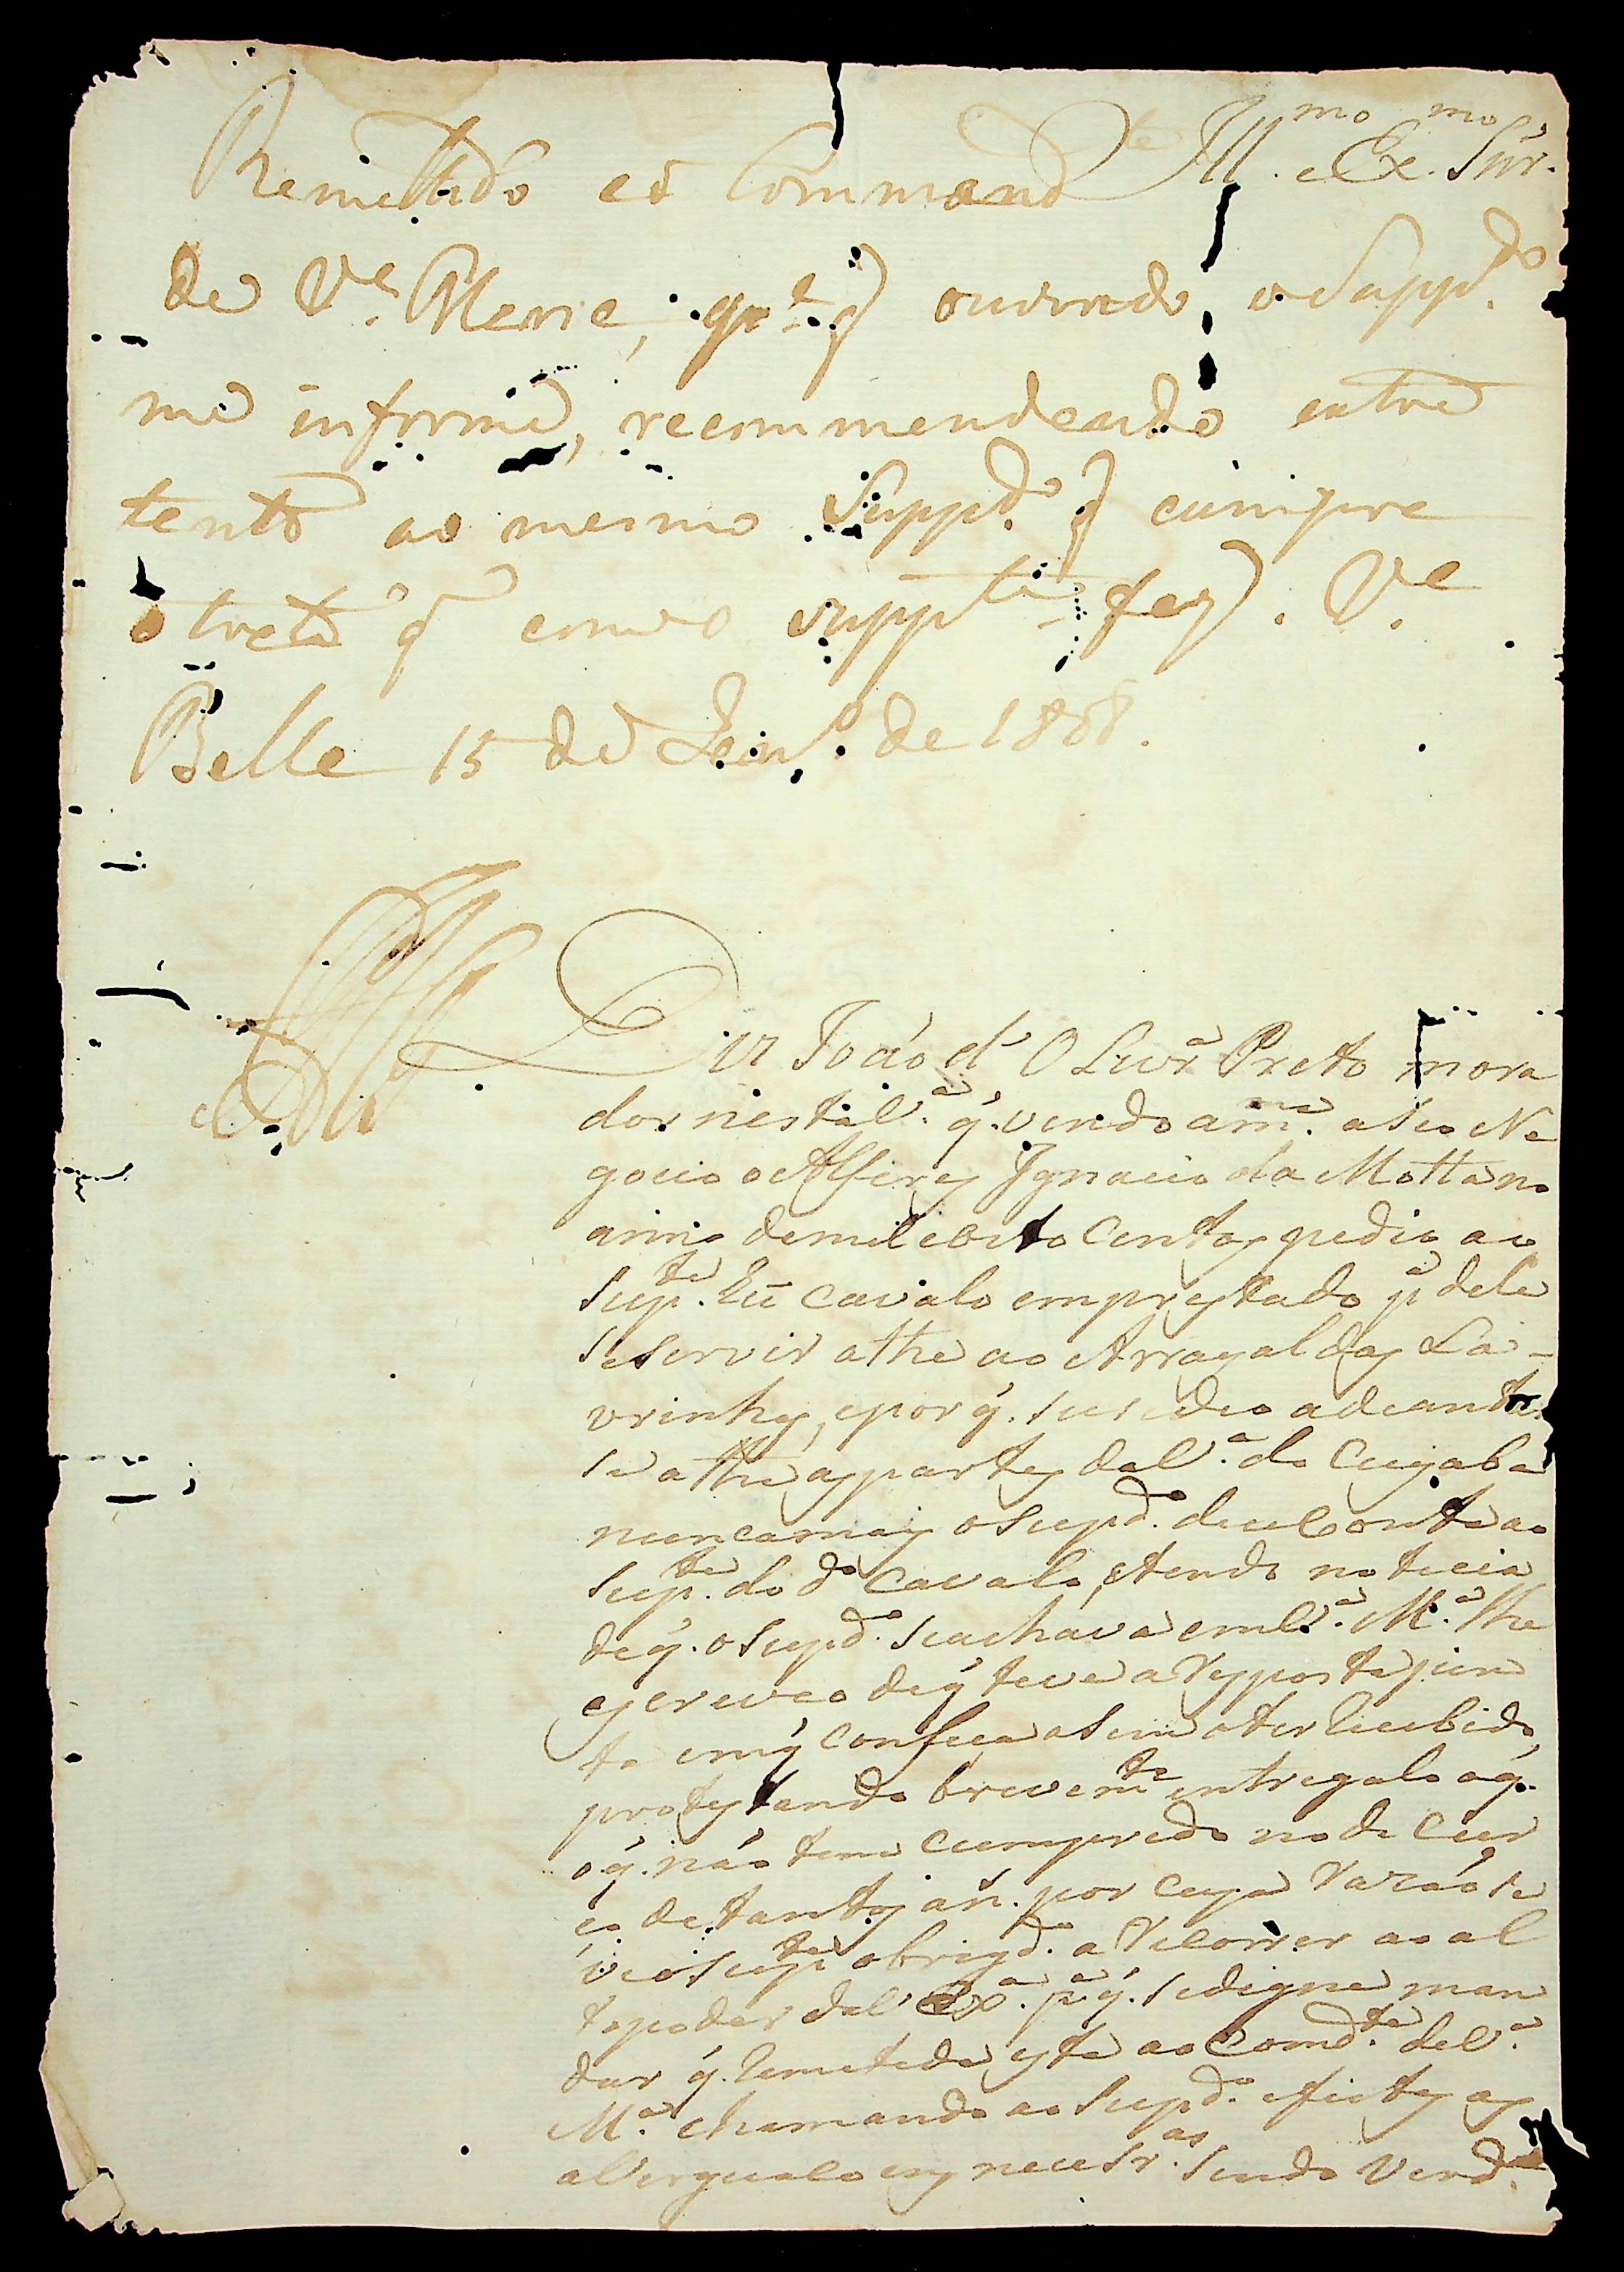 Ill.mo e Ex.mo Snr.
Remettido ao Command.te
de V.a Maria, p.a q ouvindo o Supp.do
me informe, recommendando entre
tanto ao mesmo Supp.do q cumpra
o trato q com o supp.te fez. V.a
Bella 15 de Jan.ro de 1808.
Diz João d' Olivr.a Preto mora
dor nesta V.a q. vindo a m.ma a seo Ne
gocio o Alferes Ignacio da Motta no
anno de mil e oito centos pedio ao
Sup.te hũ cavalo emprestado p.a dele
se servir athe ao Arrayal das La-
vrinhas, e por q. sucedeo adeantar
se athe as partes da V.a do Cuyaba
nunca mais o Supd.o deu conta ao
Sup.te do d.o cavalo, e tendo noticia
de q. o Supd.o se achava em V.a M.a lhe
escreveo de q teve a resposta jun
ta em q confeça asim o ter recebido,
protestando brevem.te entregalo a q.
o q. não tem cumprido no de cur
ço de tantos an.s por cuja razão se
ve o Sup.te obrigd.o a recorrer ao al
to poder de V Ex.a p.a q. se digne man
dar q. remetida esta ao Comd.te de V.a
M.a chamando ao Supd.o e feitas as
averiguaçoens necesr.as sendo verd.e